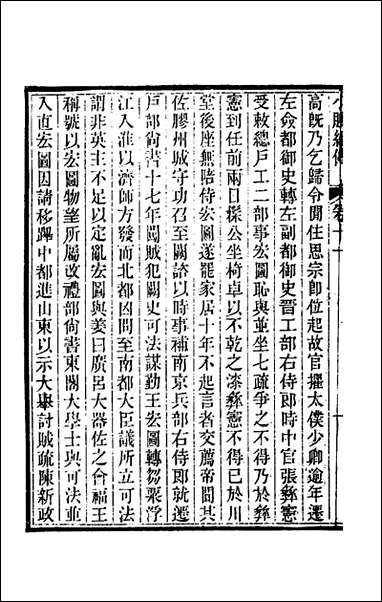 小腆紀傳
卷十一
高既乃乞歸令閒住思宗即位起故官擢太僕少卿逾年遷
左僉都御史轉左副都御史晉工部右侍郎時中官張彝憲
受敕總戶工二部事宏圖恥與並坐七疏爭之不得乃於彝
憲到任前兩日揉公坐椅卓以不乾之漆彝憲不得已於川
堂後座無陪侍宏圖遂罷家居十年不起言者交薦帝問其
佐膠州城守功召至關諮以時事補南京兵部右侍郎就遷
戶部尚書十七年闖賊犯關史可法謀勤王宏圖轉芻粟浮
江入淮以濟師方發而北都凶問至南都大臣議所立可法
謂非英主不足以定亂宏圖與姜曰廣呂大器佐之會福王
稱號以宏圖物望所屬改禮部尚書東閣大學士與可法並
入直宏圖因請移蹕中都進山東以示大舉討賊疏陳新政